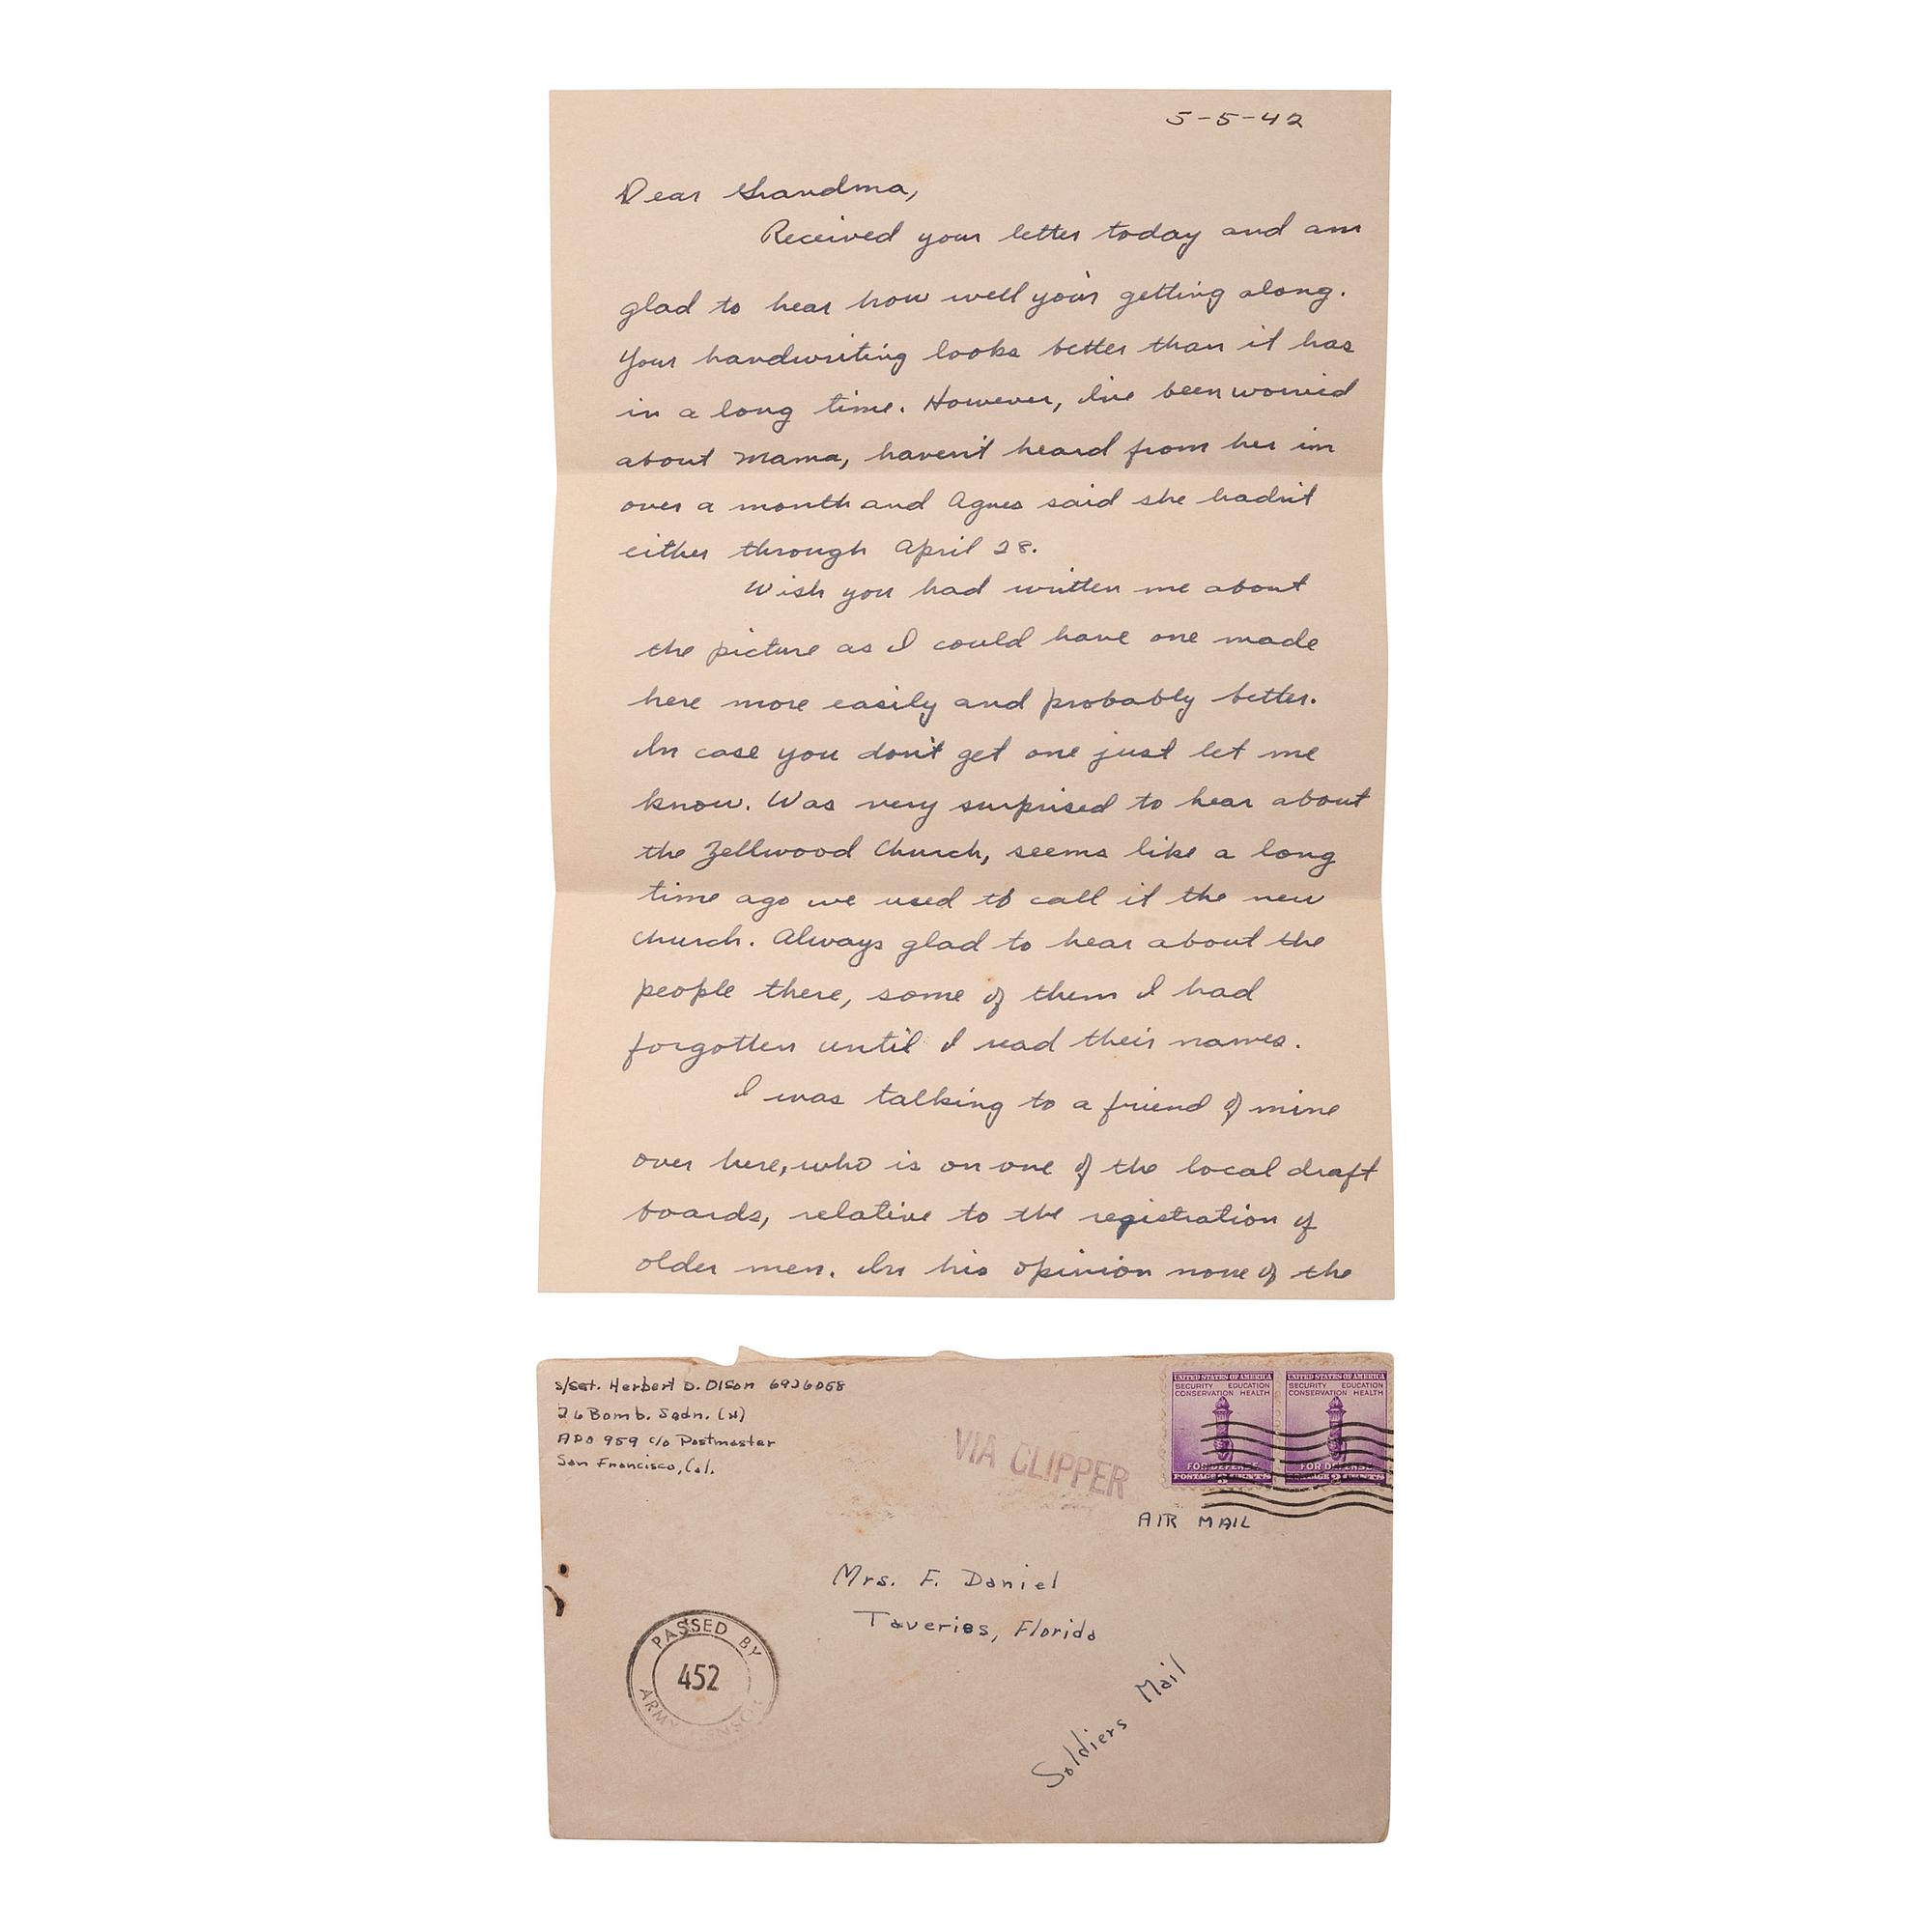 5-5-42
Dear Grandma,
Received your letter today and am
glad to hear how well your getting along.
Your handwriting looks better than it has
in a long time. However, I've been worried
about Mama, haven't heard from her in
over a month and Agnes said she hadn't
either through April 28.
Wish you had written me about
the picture as I could have one made
here more easily and probably better.
In case you don't get one just let me
know. Was very surprised to hear about
the Zellwood Church, seems like a long
time ago we used to call it the new
church. Always glad to hear about the
people there, some of them I had
forgotten until I read their names.
I was talking to a friend of mine
over here, who is on one of the local draft
boards, relative to the registration of
older men. In his opinion none of the
s/sgt. Herbert D. Olson 6926058
26 Bomb. Sqdn. (H)
APO 959 c/o Postmaster
San Francisco, Cal.
VIA CLIPPER
UNITED STATES OF AMERICA UNITED STATES OF AMERICA
SECURITY EDUCATION SECURITY EDUCATION
CONSERVATION HEALTH CONSERVATION HEALTH
FOR DEFENSE FOR DEFENSE
POSTAGE 3 CENTS POSTAGE 3 CENTS
AIR MAIL
Mrs. F. Daniel
Taveries, Florida
Soldiers Mail
PASSED BY
452
ARMY CENSOR